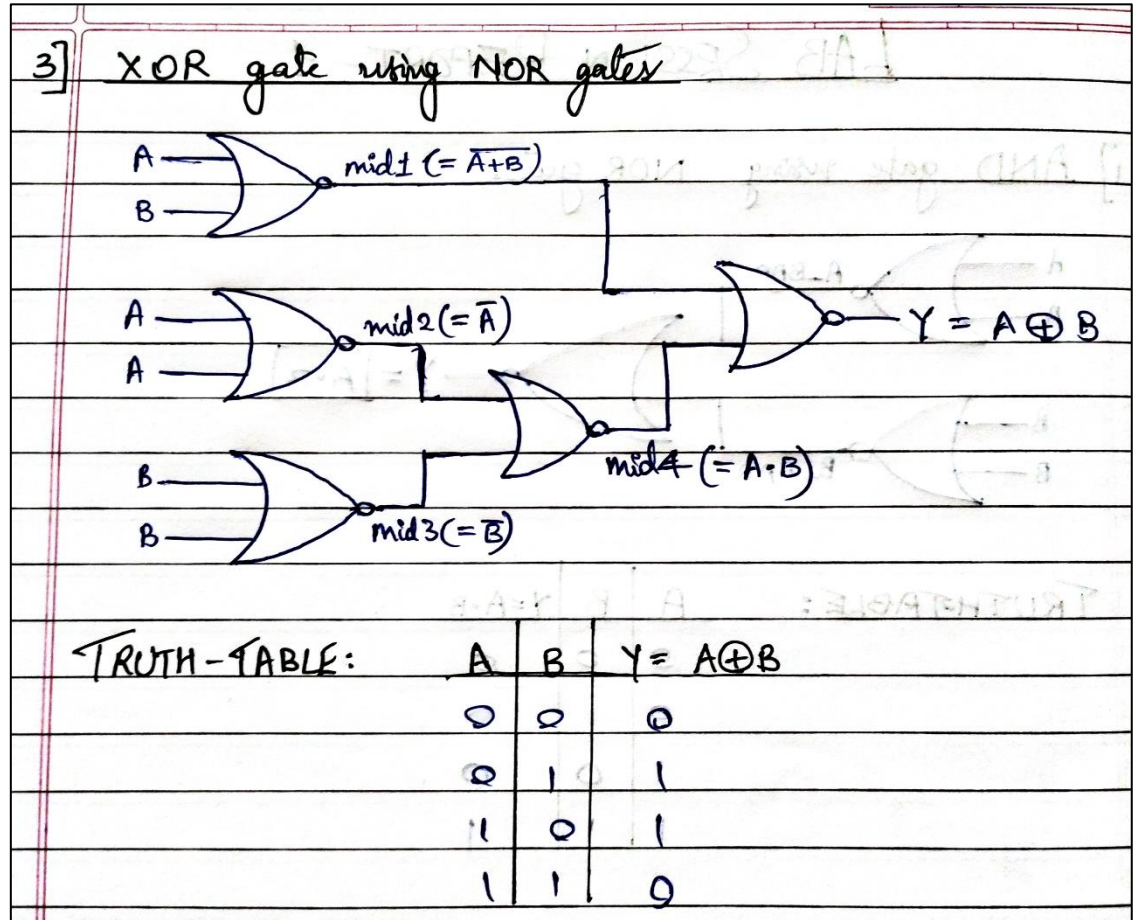 3] XOR gate using NOR gates
A
B
mid1 (= A̅+̅B̅)
A
A
mid2 (= A̅)
Y = A ⊕ B
B
B
mid3 (= B̅)
mid4 (= A·B)
TRUTH-TABLE: A B Y = A⊕B
0 0 0
0 1 1
1 0 1
1 1 0